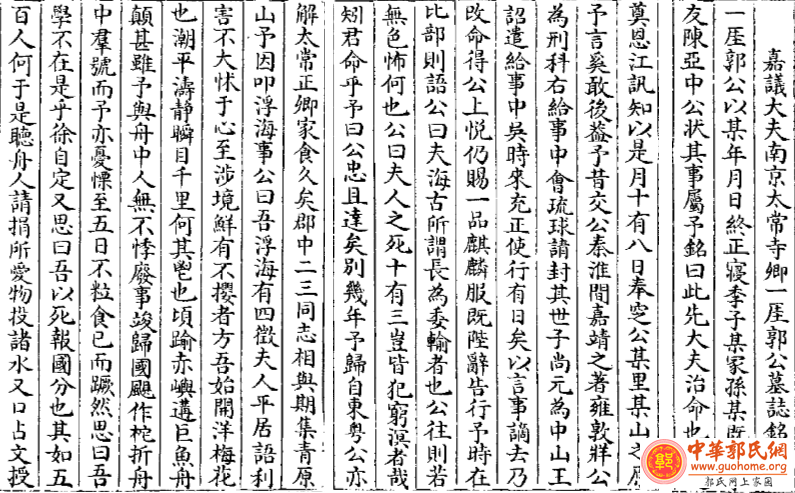 嘉議大夫南京太常寺卿一厓郭公墓誌銘
一厓郭公以某年月日終正寢季子某冢孫某既
友陳亞中公狀其事屬予銘曰此先大夫治命也
奠恩江訊知以是月十有八日奉窆公某里某山之原
予言奚敢後葢予昔交公秦淮間嘉靖之著雍敦牂公
為刑科右給事中會琉球請封其世子尚元為中山王
詔遣給事中吳時來充正使行有日矣以言事謫去乃
改命得公上悅仍賜一品麒麟服既陛辭告行予時在
比部則語公曰夫海古所謂長為委輸者也公往則若
無色怖何也公曰夫人之死十有三豈皆犯窮溟者哉
矧君命乎予曰公忠且達矣別幾年予歸自東粵公亦
解太常正卿家食久矣郡中二三同志相與期集青原
山予因叩浮海事公曰吾浮海有四徵夫人平居語利
害不大怵于心至涉境鮮有不攖者方吾始開洋梅花
也潮平濤静瞬目千里何其鬯也頃踰赤嶼遘巨魚舟
顛甚雖予與舟中人無不悸廢事竣歸國颶作柁折舟
中羣號而予亦憂慄至五日不粒食已而蹶然思曰吾
學不在是乎徐自定又思曰吾以死報國分也其如五
百人何于是聽舟人請捐所愛物投諸水又口占文授
中華郭氏網
www.guohome.org
郭氏网上家园